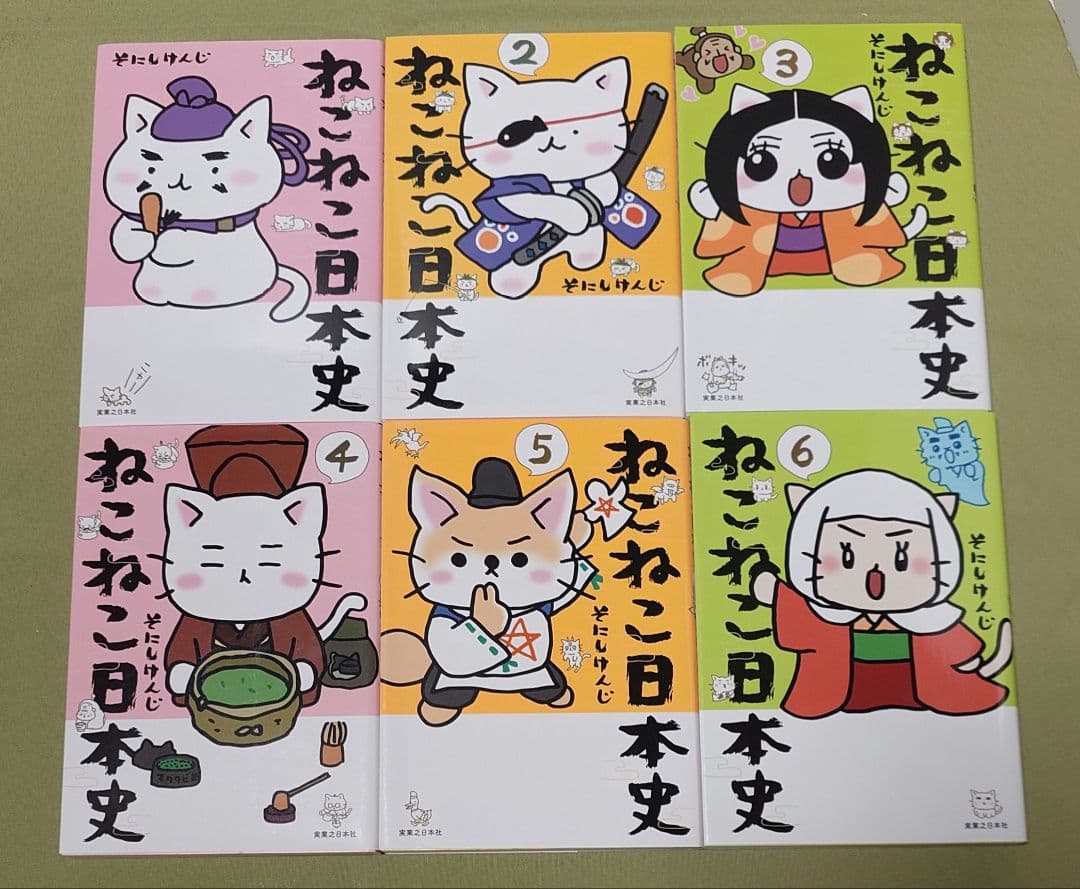 そにしけんじ
ねこねこ日本史
実業之日本社
2
ねこねこ日本史
そにしけんじ
実業之日本社
3
そにしけんじ
ねこねこ日本史
ボキッ
実業之日本社
4
ねこねこ日本史
そにしけんじ
マタタビ
実業之日本社
5
ねこねこ日本史
そにしけんじ
実業之日本社
6
ねこねこ日本史
そにしけんじ
実業之日本社